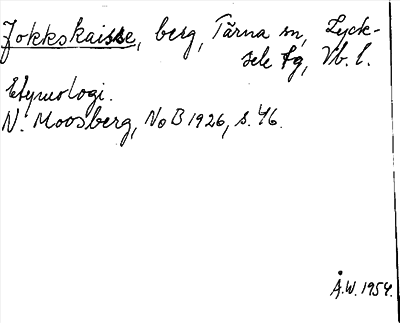 Jokkskaisse, berg, Tärna sn, Lyck-
sele tg, Vb. l.
Etymologi.
N. Moosberg, NoB 1926, s. 46.
Å.W. 1954.